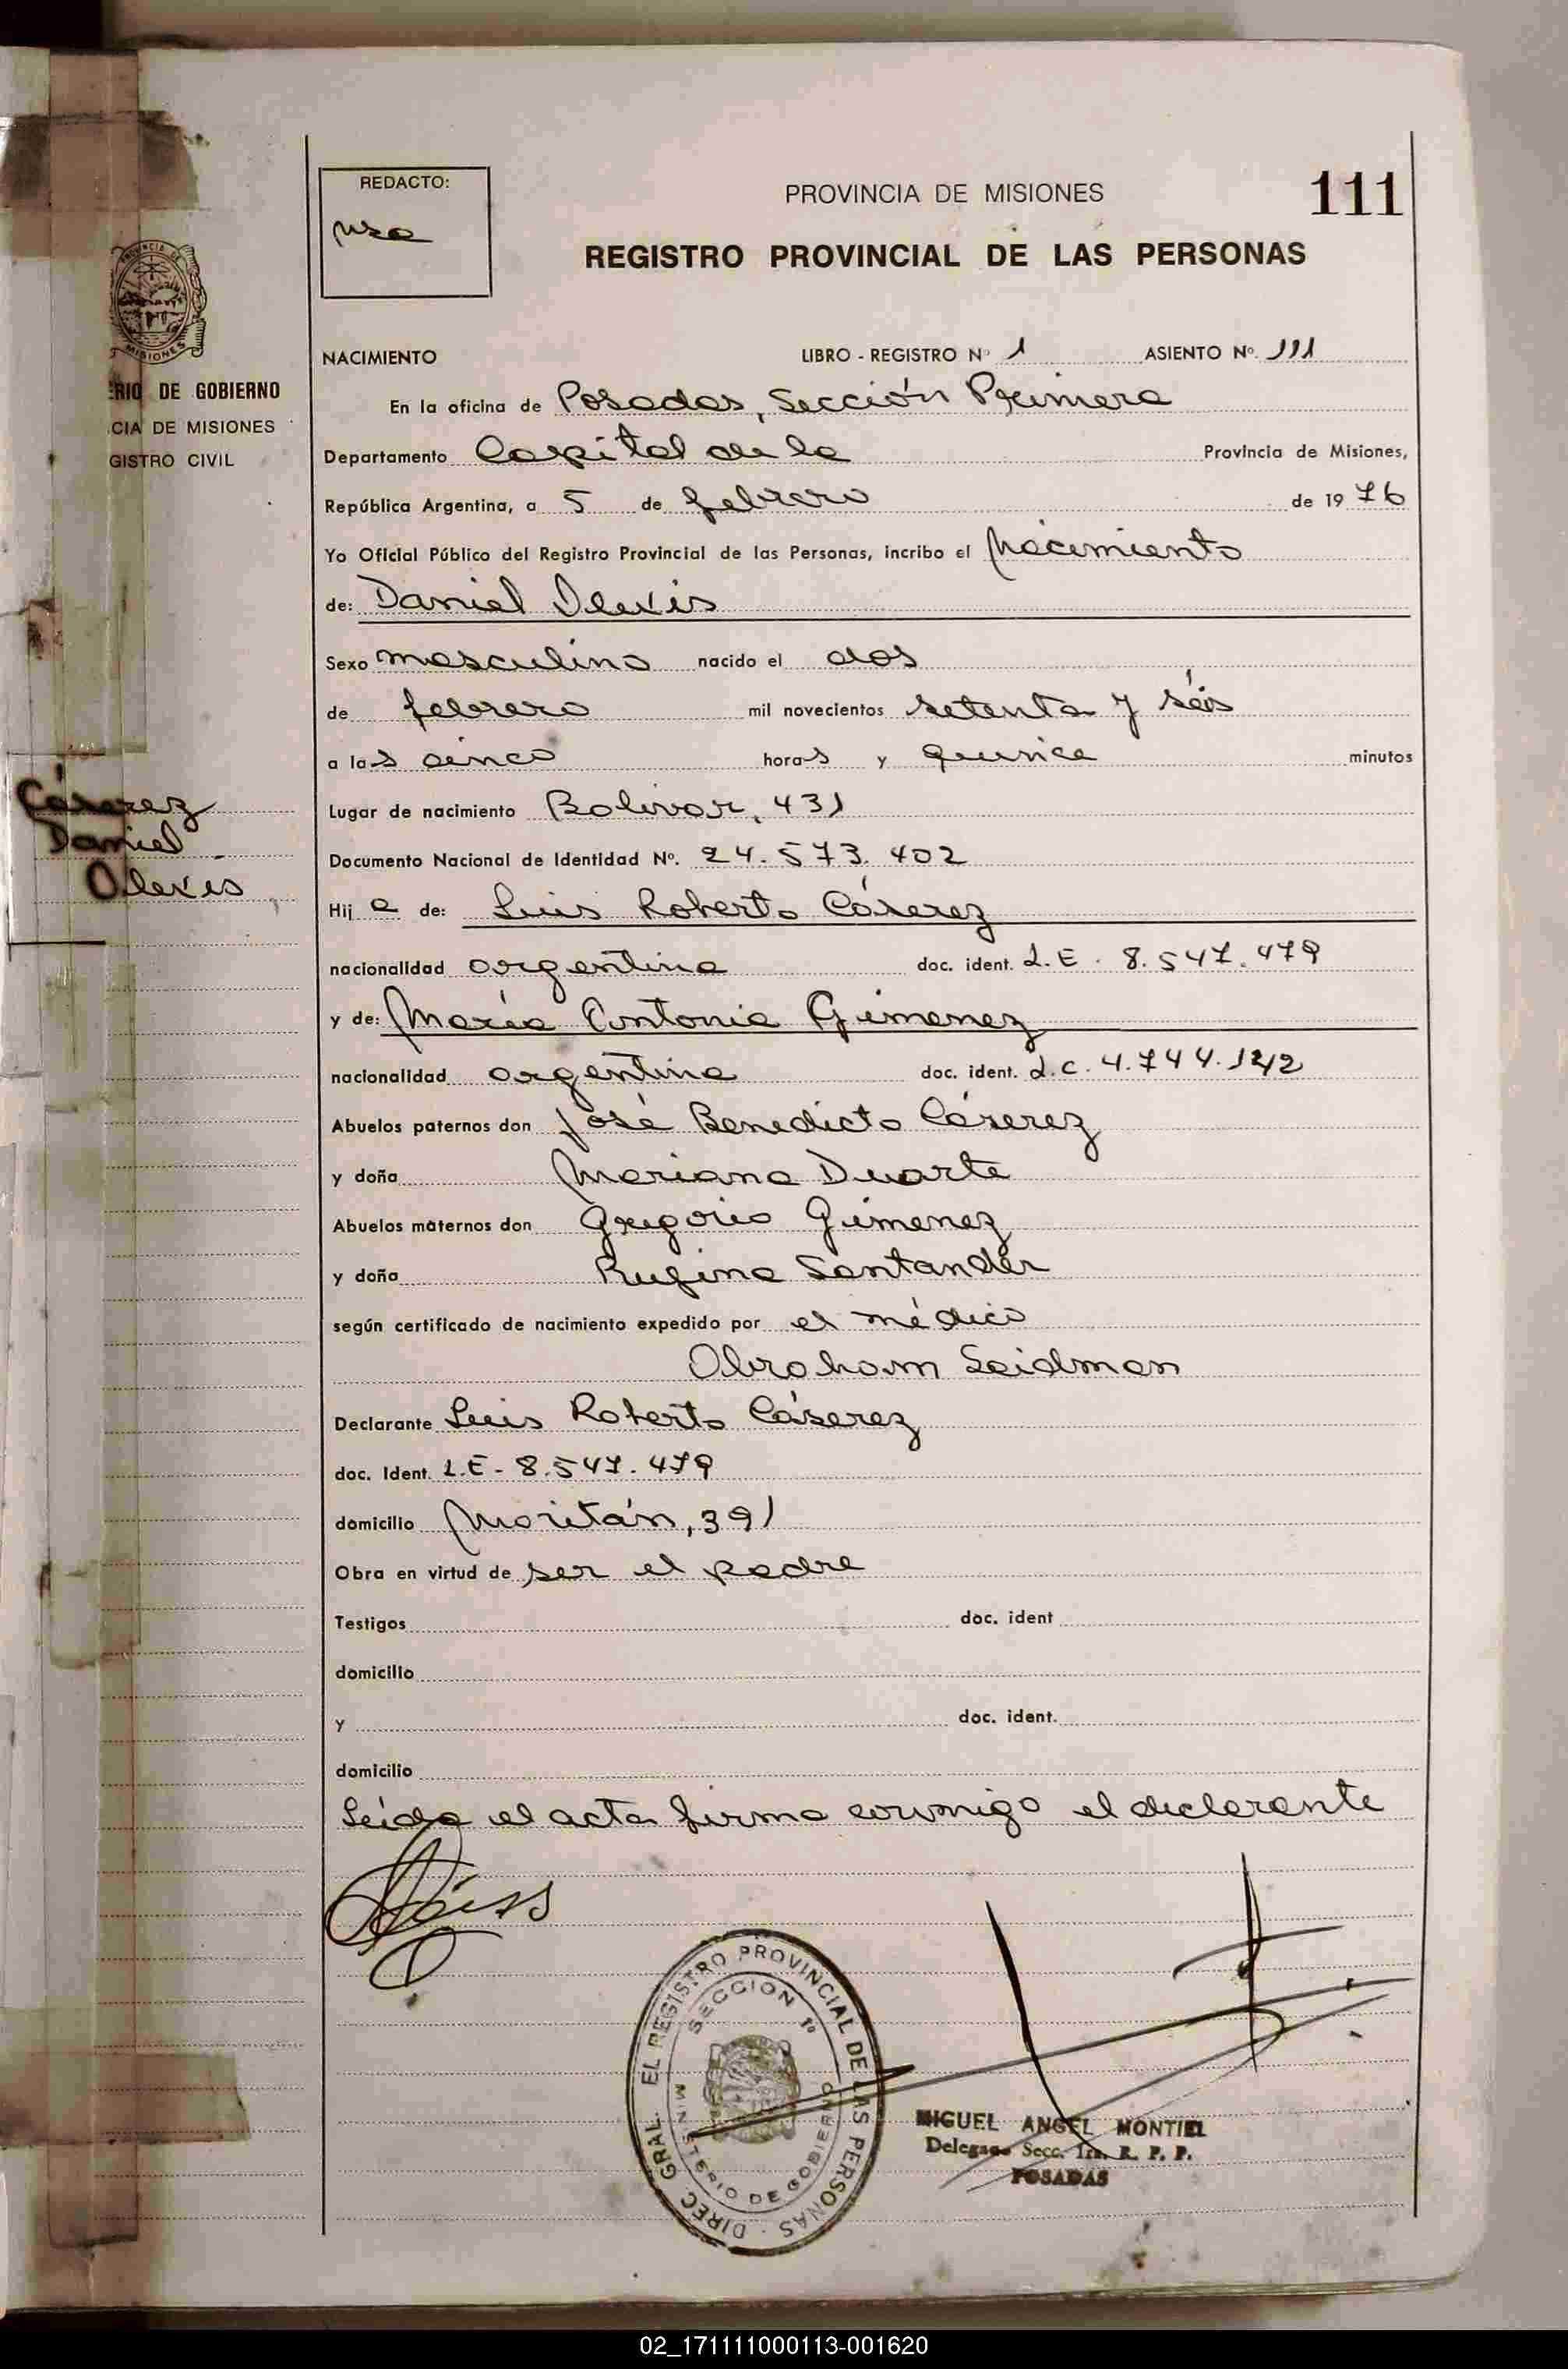 REDACTO:
PROVINCIA DE MISIONES
111
REGISTRO PROVINCIAL DE LAS PERSONAS
PROVINCIA DE
MISIONES
RIO DE GOBIERNO
CIA DE MISIONES
GISTRO CIVIL
NACIMIENTO LIBRO - REGISTRO Nº 1 ASIENTO Nº. 111
En la oficina de Posadas, Sección Primera
Departamento Capital de la Provincia de Misiones,
República Argentina, a 5 de febrero de 1976
Yo Oficial Público del Registro Provincial de las Personas, incribo el Nacimiento
de: Daniel Alexis
Sexo masculino nacido el dos
de febrero mil novecientos setenta y séis
a las cinco horas y quince minutos
Cáserez
Daniel
Alexis
Lugar de nacimiento Bolivar, 431
Documento Nacional de Identidad Nº. 24.573.402
Hij o de: Luis Roberto Cáserez
nacionalidad argentina doc. ident. L.E. 8.547.479
y de: María Antonia Gimenez
nacionalidad argentina doc. ident. L.C. 4.744.142
Abuelos paternos don José Benedicto Cáserez
y doña Mariana Duarte
Abuelos maternos don Gregorio Gimenez
y doña Rufina Santander
según certificado de nacimiento expedido por el médico
Abraham Seidman
Declarante Luis Roberto Cáserez
doc. Ident. L.E- 8.547.479
domicilio Moritán, 391
Obra en virtud de ser el padre
Testigos doc. ident
domicilio
y doc. ident.
domicilio
Leída el acta firma conmigo el declarante
DIREC. GRAL. EL REGISTRO PROVINCIAL DE LAS PERSONAS
SECCION 1º
MINISTERIO DE GOBIERNO
MIGUEL ANGEL MONTIEL
Delegado Secc. 1ra. R. P. P.
POSADAS
02_171111000113-001620